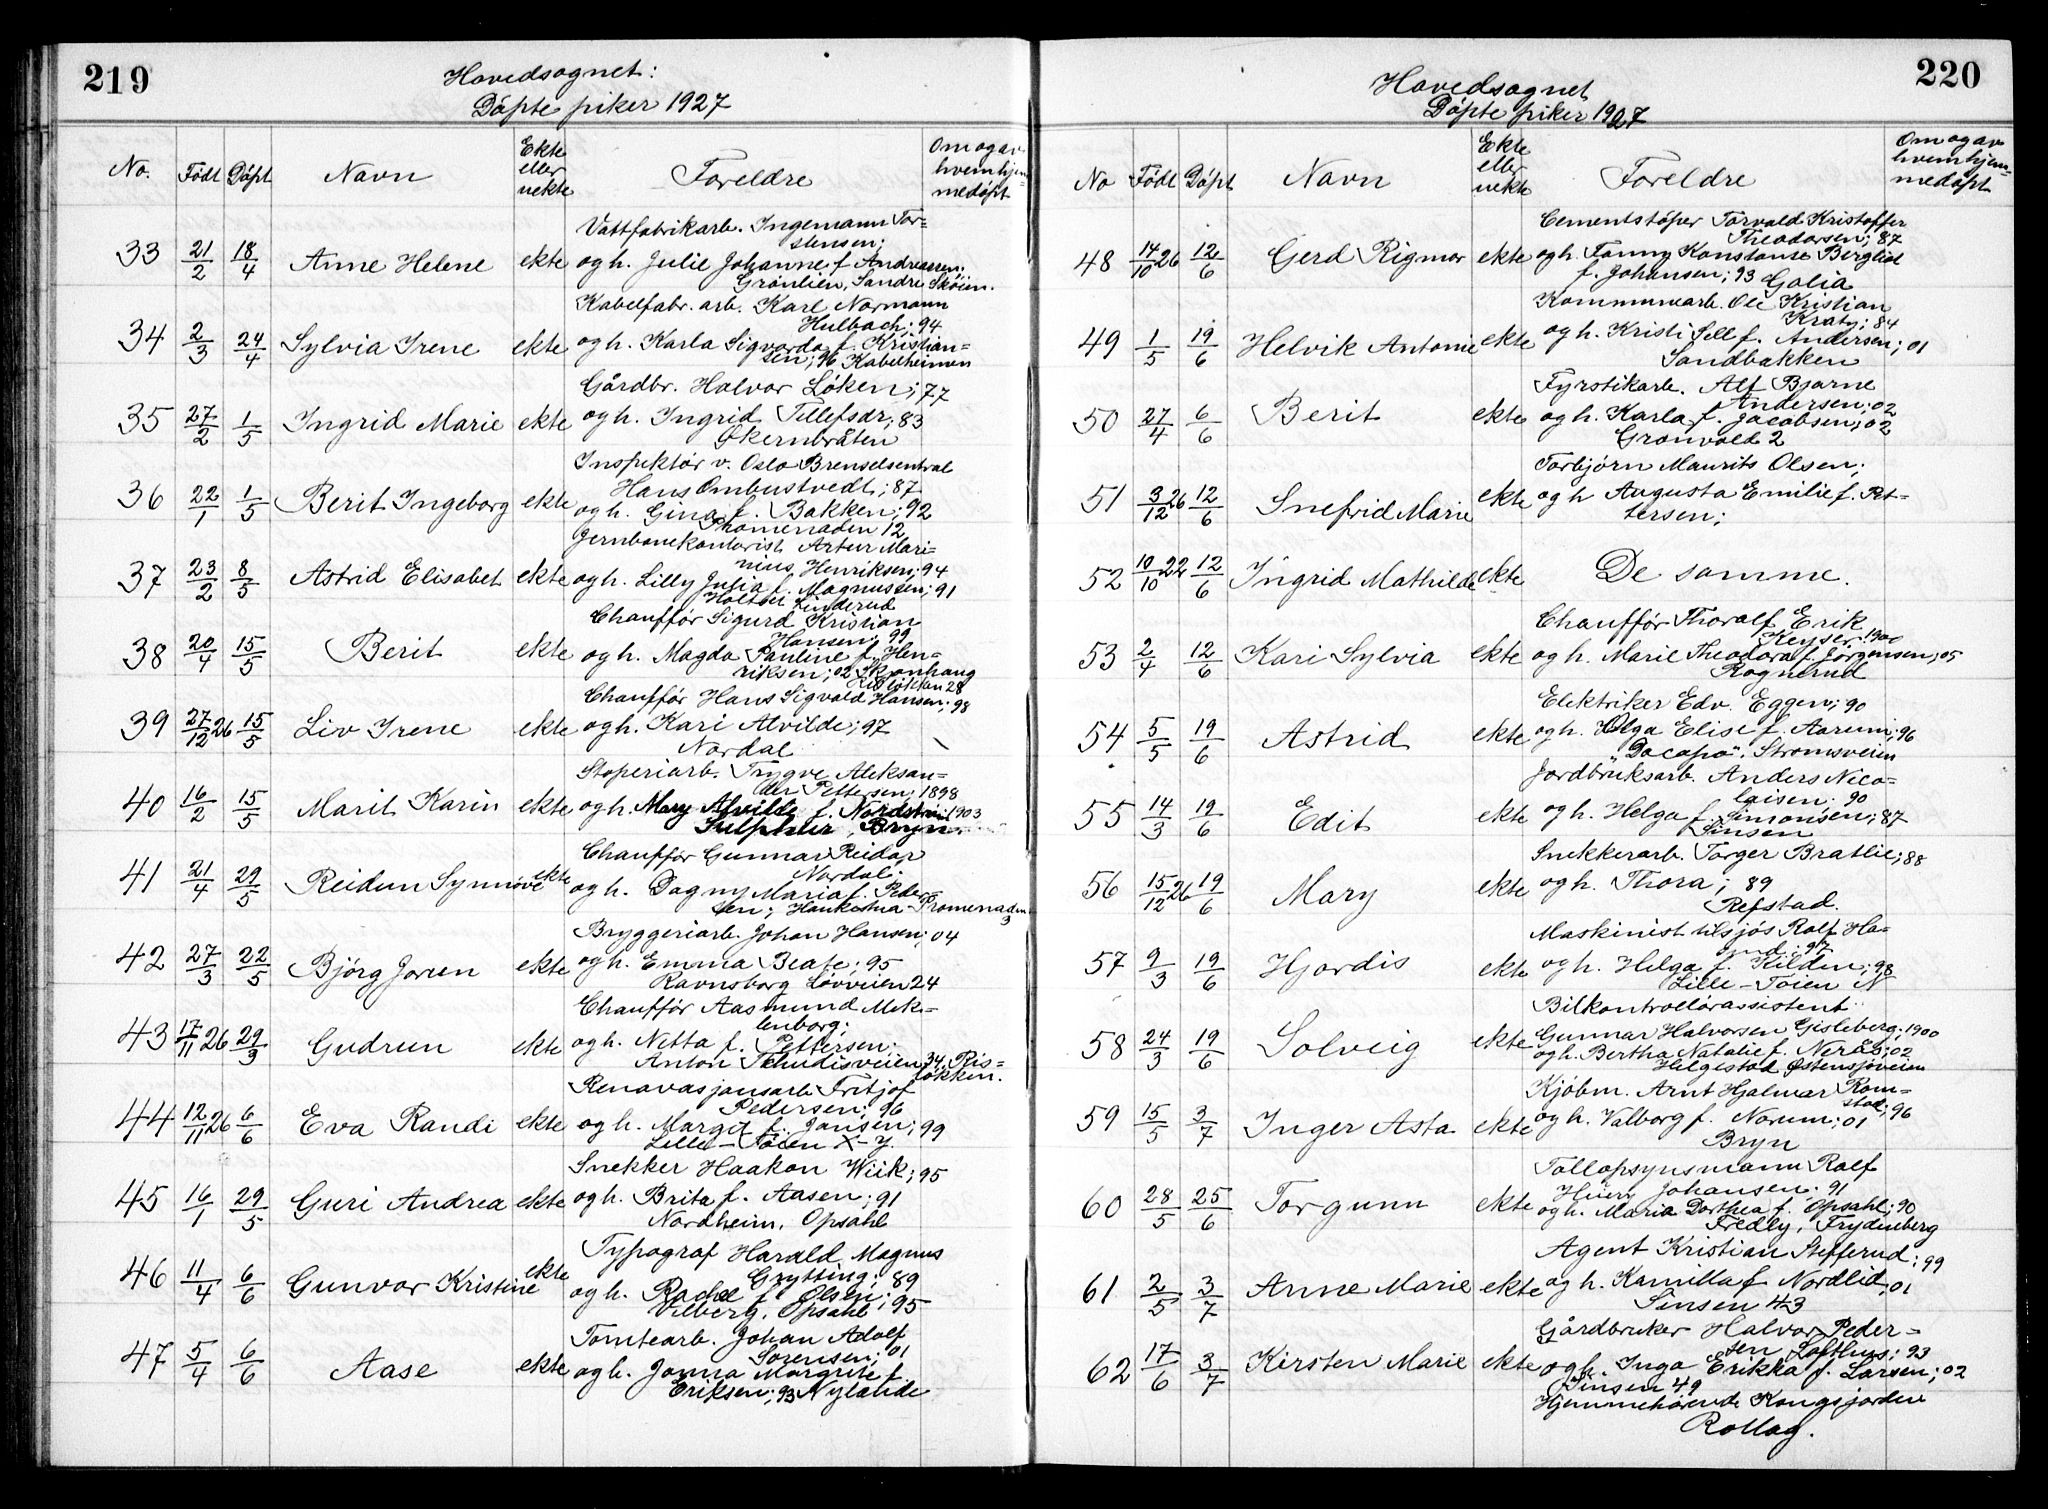 219
Hovedsognet:
Döpte piker 1927
No. Födt Döpt Navn Ekte eller uekte Foreldre Om og av hvem hjemmedöpt
33 21/2 18/4 Anne Helene ekte
Vattfabrikarb. Ingemann Tor=
stensen;
og h. Julie Johanne f. Andreassen;
Grönlien, Søndre Skøien.
34 2/3 24/4 Sylvia Irene ekte
Kabelfabr. arb. Karl Normann
Hulbach; 94
og h. Karla Sigvarda f. Kristian=
sen; 96 Kabelheimen
35 27/2 1/5 Ingrid Marie ekte
Gårdbr. Halvor Löken; 77
og h. Ingrid Tellefsdr; 83
Økernbråten
36 22/1 1/5 Berit Ingeborg ekte
Inspektör v. Oslo Brenselsentral
Hans Ombustvedt; 87
og h. Gina f. Bakken; 92
Promenaden 12
37 23/2 8/5 Astrid Elisabet ekte
Jernbanekontorist Artur Mari=
nius Henriksen; 94
og h. Lilly Julia f. Magnussen; 91
Holtset Linderud
38 20/4 15/5 Berit ekte
Chaufför Sigurd Kristian
Hansen; 99
og h. Magda Pauline f. Hen=
riksen; 02 Skjonhaug
Risløkken 28
39 27/12 26 15/5 Liv Irene ekte
Chaufför Hans Sigvald Hansen; 98
og h. Kari Alvilde; 97
Nordal
40 16/2 15/5 Marit Karin ekte
Stoperiarb. Trygve Aleksan=
der Pettersen; 1898
og h. Mary Alvilde f. Nordström; 1903
Bryn.
41 21/4 29/5 Reidun Synnöve ekte
Chauffør Gunnar Reidar
Nordal;
og h. Dagny Maria f. Peder=
sen; Haukelia - Promenaden
3
42 27/3 22/5 Björg Joren ekte
Bryggeriarb. Johan Hansen; 04
og h. Emma Beate; 95
Ravnsborg Lövveien 24
43 17/11 26 29/3 Gudrun ekte
Chauffør Aasmund Mek=
lenborg;
og h. Netta f. Pettersen;
Anton Schudisveien 34, Ris=
løkken.
44 12/11 26 6/6 Eva Randi ekte
Renovasjonsarb Fritjof
Pedersen; 96
og h. Margit f. Jansen; 99
Lille - Töien X - y.
45 16/1 29/5 Guri Andrea ekte
Snekker Haakon Wiik; 95
og h. Brita f. Aasen; 91
Nordheim, Opsahl
46 11/4 6/6 Gunvor Kristine ekte
Typograf Harald Magnus
Grytting; 89
og h. Rachel f. Olsen; 95
Vilberg, Opsahl
47 5/4 6/6 Aase ekte
Tomtearb. Johan Adolf
Sorensen; 01
og h. Jonna Margrete f.
Eriksen; 93 Nylænde
220
Hovedsognet
Döpte piker 1927
No Födt Döpt Navn Ekte eller uekte Foreldre Om og av hvem hjemmedöpt
48 14/10 26 12/6 Gerd Rigmor ekte
Cementstöper Torvald Kristoffer
Theodorsen; 87
og h. Fanny Konstanse Bergliot
f. Johansen; 93 Golia
49 1/5 19/6 Helvik Antonie ekte
Kommunearb. Ole Kristian
Kraty; 84
og h. Kristi Sell f. Andersen; 01
Sandbakken
50 27/4 6/6 Berit ekte
Fyrstikarb. Alf Bjarne
Andersen; 02
og h. Karla f. Jacobsen; 02
Grønvold 2
51 3/12 26 12/6 Snefrid Marie ekte
Torbjörn Maurits Olsen;
og h Augusta Emilie f. Pet=
tersen;
52 10/10 22 12/6 Ingrid Mathilde ekte
De samme.
53 2/4 12/6 Kari Sylvia ekte
Chauffør Thoralf Erik
Keyser; 1900
og h. Marie Theodora f. Jörgensen; 05
Rognerud
54 5/5 19/6 Astrid ekte
Elektriker Edv. Eggen; 90
og h. Olga Elise f. Aarum; 96
"Dacapo". Strømsveien
55 14/3 19/6 Edit ekte
Jordbruksarb. Anders Nico=
laisen; 90
og h. Helga f. Simonsen; 87
Sinsen
56 15/12 26 19/6 Mary ekte
Snekkerarb. Torger Bratlie; 88
og h. Thora; 89
Refstad.
57 9/3 19/6 Hjordis ekte
Maskinist tilsjös Rolf Ha=
gund; 97
og h. Helga f. Kilden; 98
Lille - Töien N
58 24/3 19/6 Solveig ekte
Bilkontrollörassistent
Gunnar Halvorsen Gisleberg; 1900
og h. Bertha Natalie f. Nerås; 02
Helgestad Østensjøveien
59 15/5 3/7 Inger Asta ekte
Kjöbm. Arnt Hjalmar Rom=
stad; 96
og h. Valborg f. Norum; 01
Bryn
60 28/5 25/6 Torgunn ekte
Tollopsynsmann Rolf
Henry Johansen; 91
og h. Maria Dorthea f. Opsahl; 90
Fredly, Frydenberg
61 2/5 3/7 Anne Marie ekte
Agent Kristian Stefferud; 99
og h. Kamilla f. Nordlid; 01
Sinsen 43
62 17/6 3/7 Kirsten Marie ekte
Gårdbruker Halvor Peder=
sen Lofthus; 93
og h. Inga Erikka f. Larsen; 02
Sinsen 49
Hjemmehörende Kongsjorden
Rollag.